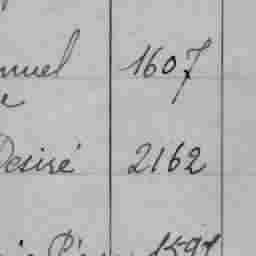 nuel 1607
e
Desiré 2162